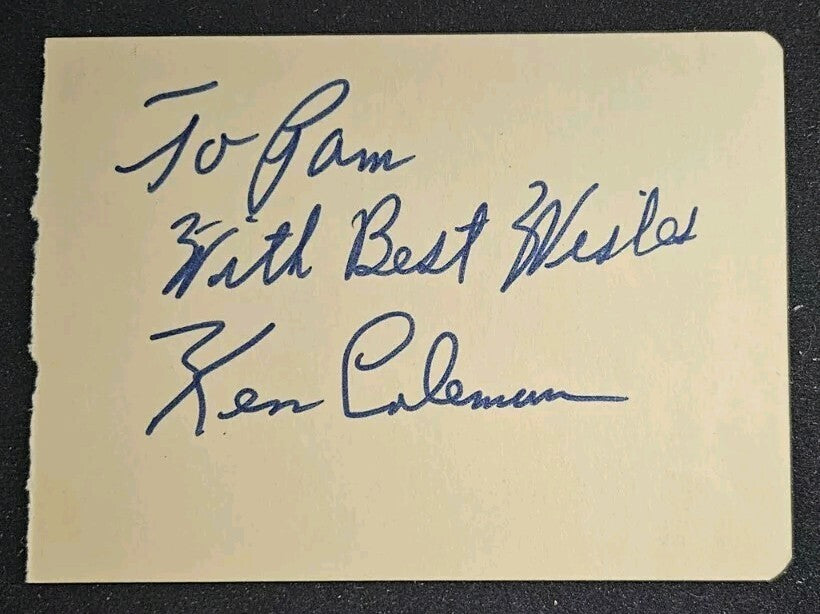 To Pam
With Best Wishes
Ken Coleman